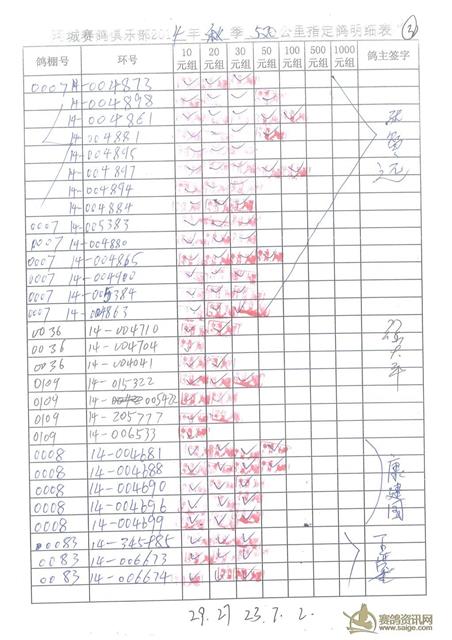 城赛鸽俱乐部201 年秋季500公里指定鸽明细表 ③
鸽棚号 环号 10元组 20元组 30元组 50元组 100元组 500元组 1000元组 鸽主签字
0007 14-004873
14-004898
14-004861
14-004881
14-004895
14-004897
14-004894
14-004884
0007 14-005383
0007 14-004880
0007 14-004865
0007 14-004900
0007 14-005384
0007 14-004863
0036 14-004710
0036 14-004704
0036 14-004041
0109 14-015322
0109 14-005422
0109 14-205777
0109 14-006533
0008 14-004681
0008 14-004688
0008 14-004690
0008 14-004696
0008 14-004699
康建国
0083 14-345485
0083 14-006673
0083 14-006674
29.27 23.7.2.
赛鸽资讯网
www.saige.com